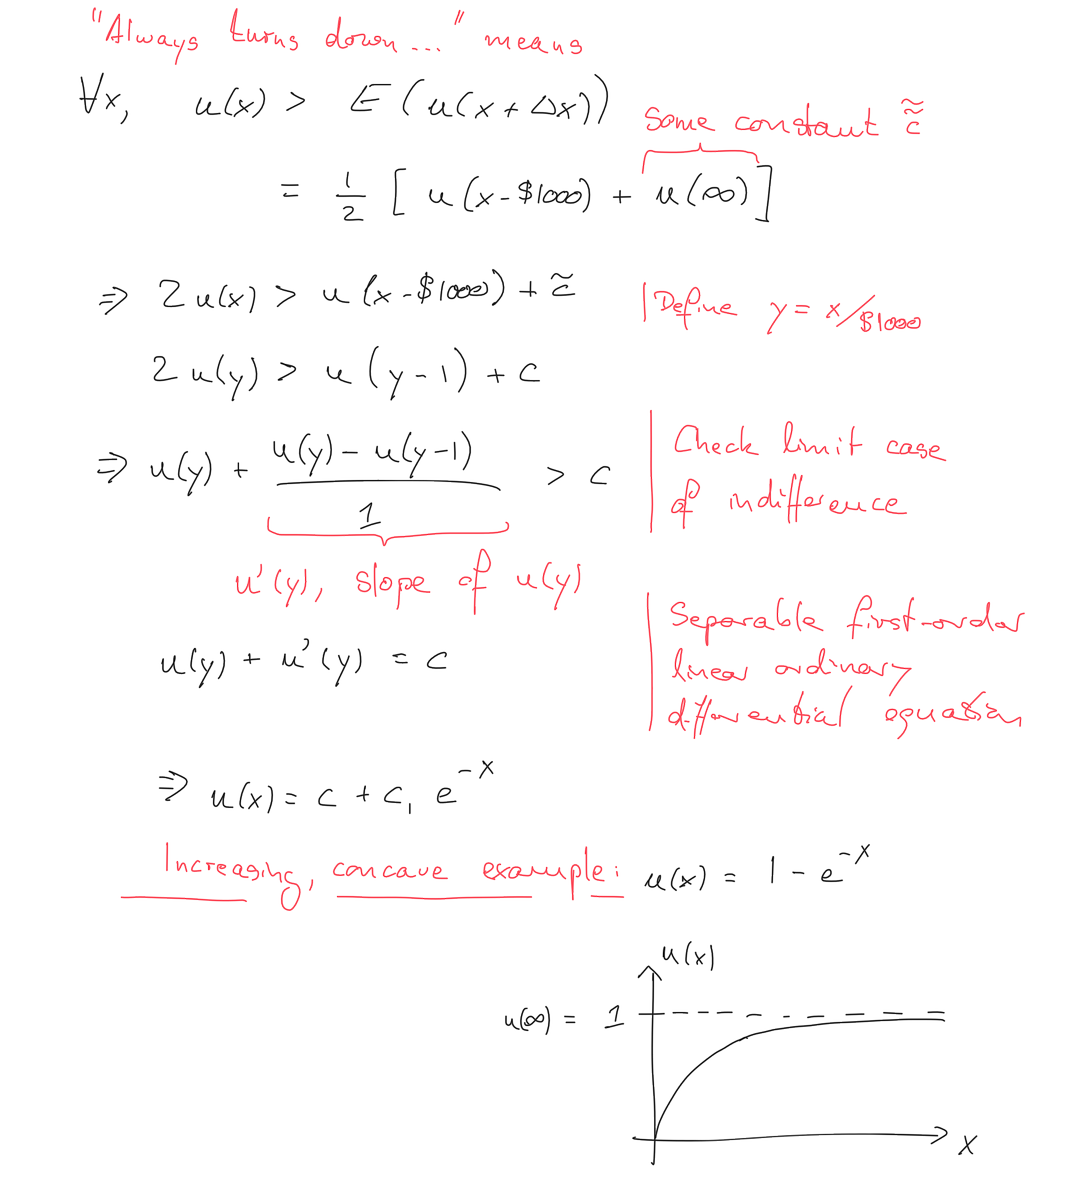 "Always turns down..." means
∀x, u(x) > E(u(x + Δx))
some constant c̃̃
= 1/2 [u(x-$1000) + u(∞)]
⇒ 2u(x) > u(x-$1000) + c̃
|Define y = x/$1000
2u(y) > u(y-1) + c
⇒ u(y) + (u(y) - u(y-1))/1 > c
Check limit case
of indifference
u'(y), slope of u(y)
Separable first-order
linear ordinary
differential equation
u(y) + u'(y) = c
⇒ u(x) = c + c₁ e^-x
Increasing, concave example: u(x) = 1 - e^-x
u(x)
u(∞) = 1
x